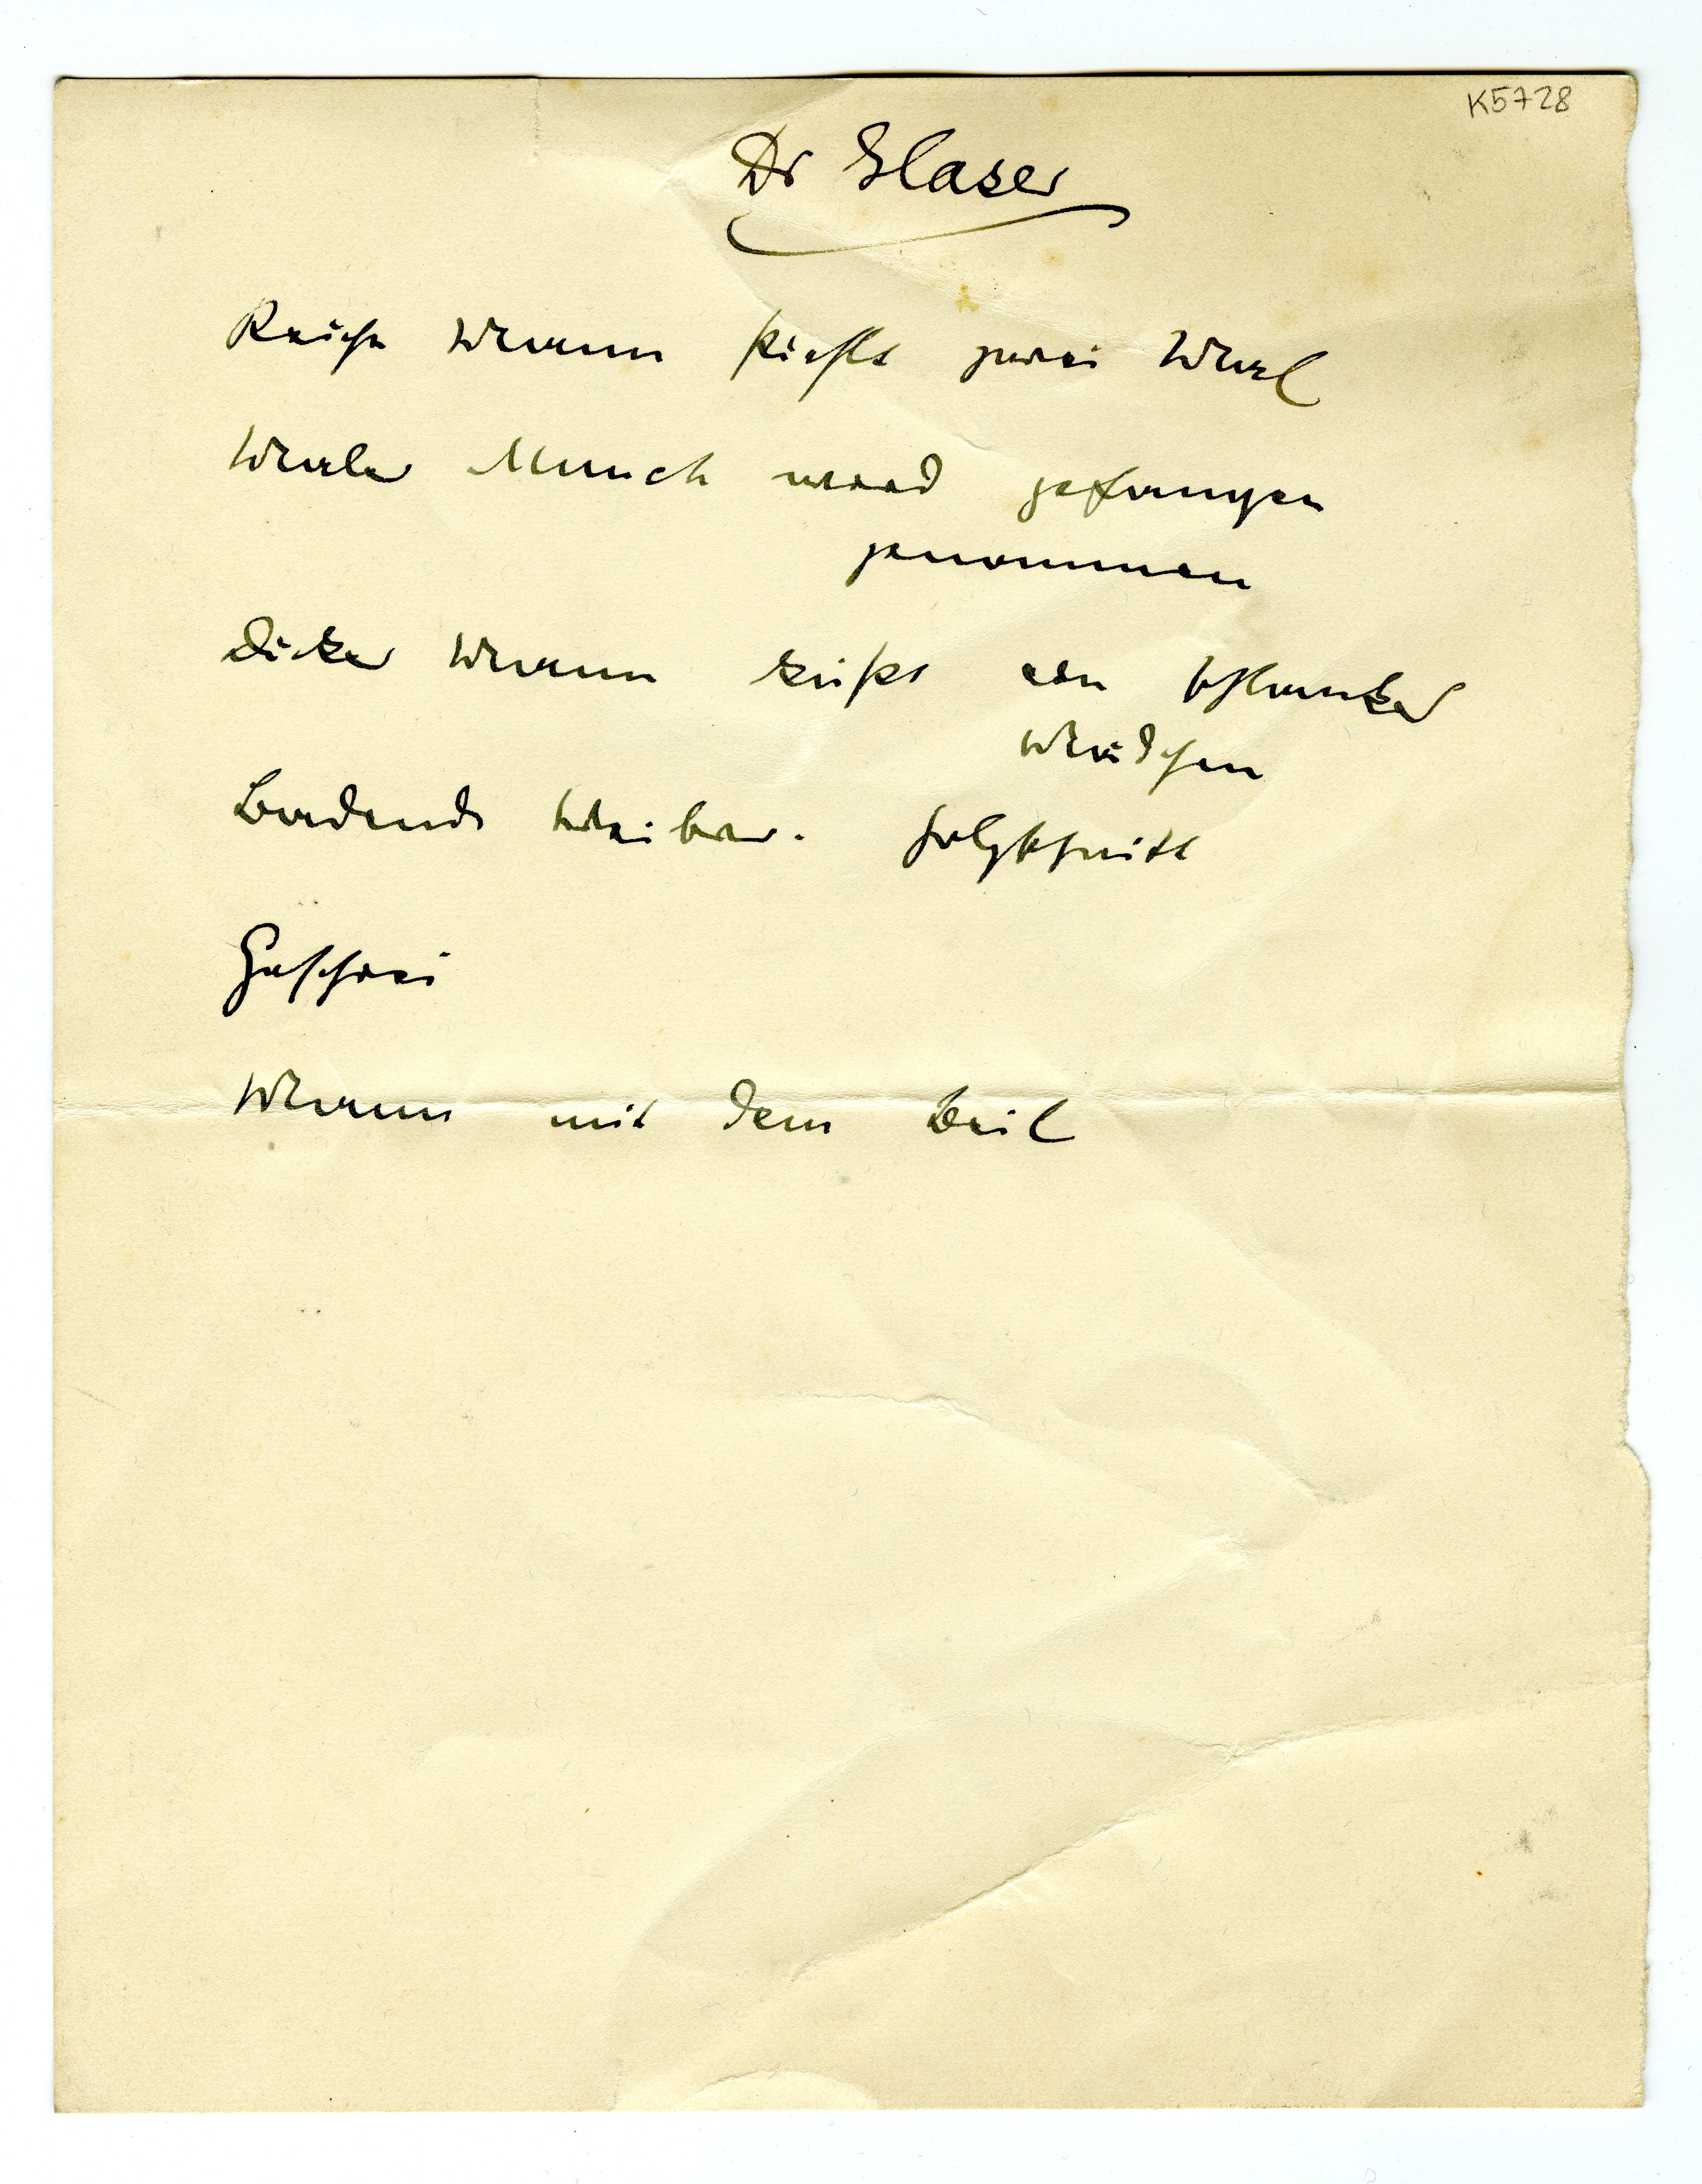 K5728
Dr Glaser
Reiche Mann sieht zwei Mal
Maler Munch ward gefangen
genommen
Dicker Mann küsst ein schlanker
Mädchen
Badende Weiber. Holzschnitt
Geschrei
Mann mit dem Beil